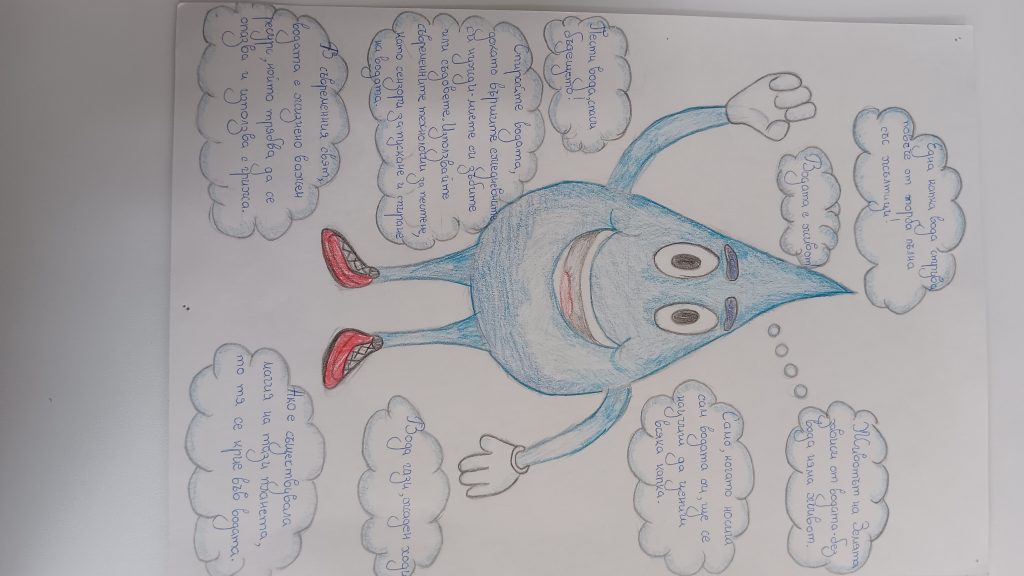 Една капка вода струва
повече от торба пълна
със жълтици!
Водата е живот
Животът на Земята
зависи от водата-без
вода няма живот.
Пести вода, спаси
бъдещето!
Само, когато носиш
сам водата си, ще се
научиш да цениш
всяка капка.
Спирайте водата,
докато вършите ежедневните
си нужди-миете си зъбите
или съдовете. Използвайте
съвременните технологии за пестене,
като сензори за пускане и спиране
на водата.
Вода гази, жаден ходи
В съвременния свят,
водата е жизнено важен
ресурс, който трябва да се
опазва и използва с грижа.
Ако е съществувала
магия на тази планета,
то тя се крие във водата.